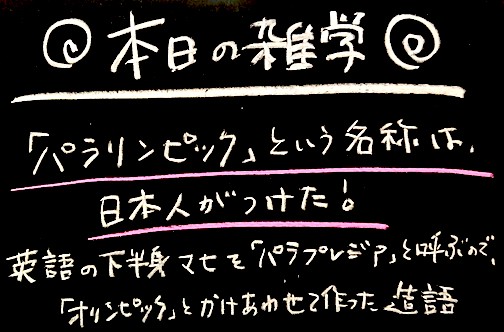 @ 本日の雑学 @
「パラリンピック」という名称は、
日本人がつけた!
英語の下半身マヒを「パラプレジア」と呼ぶので、
「オリンピック」とかけあわせて作った造語